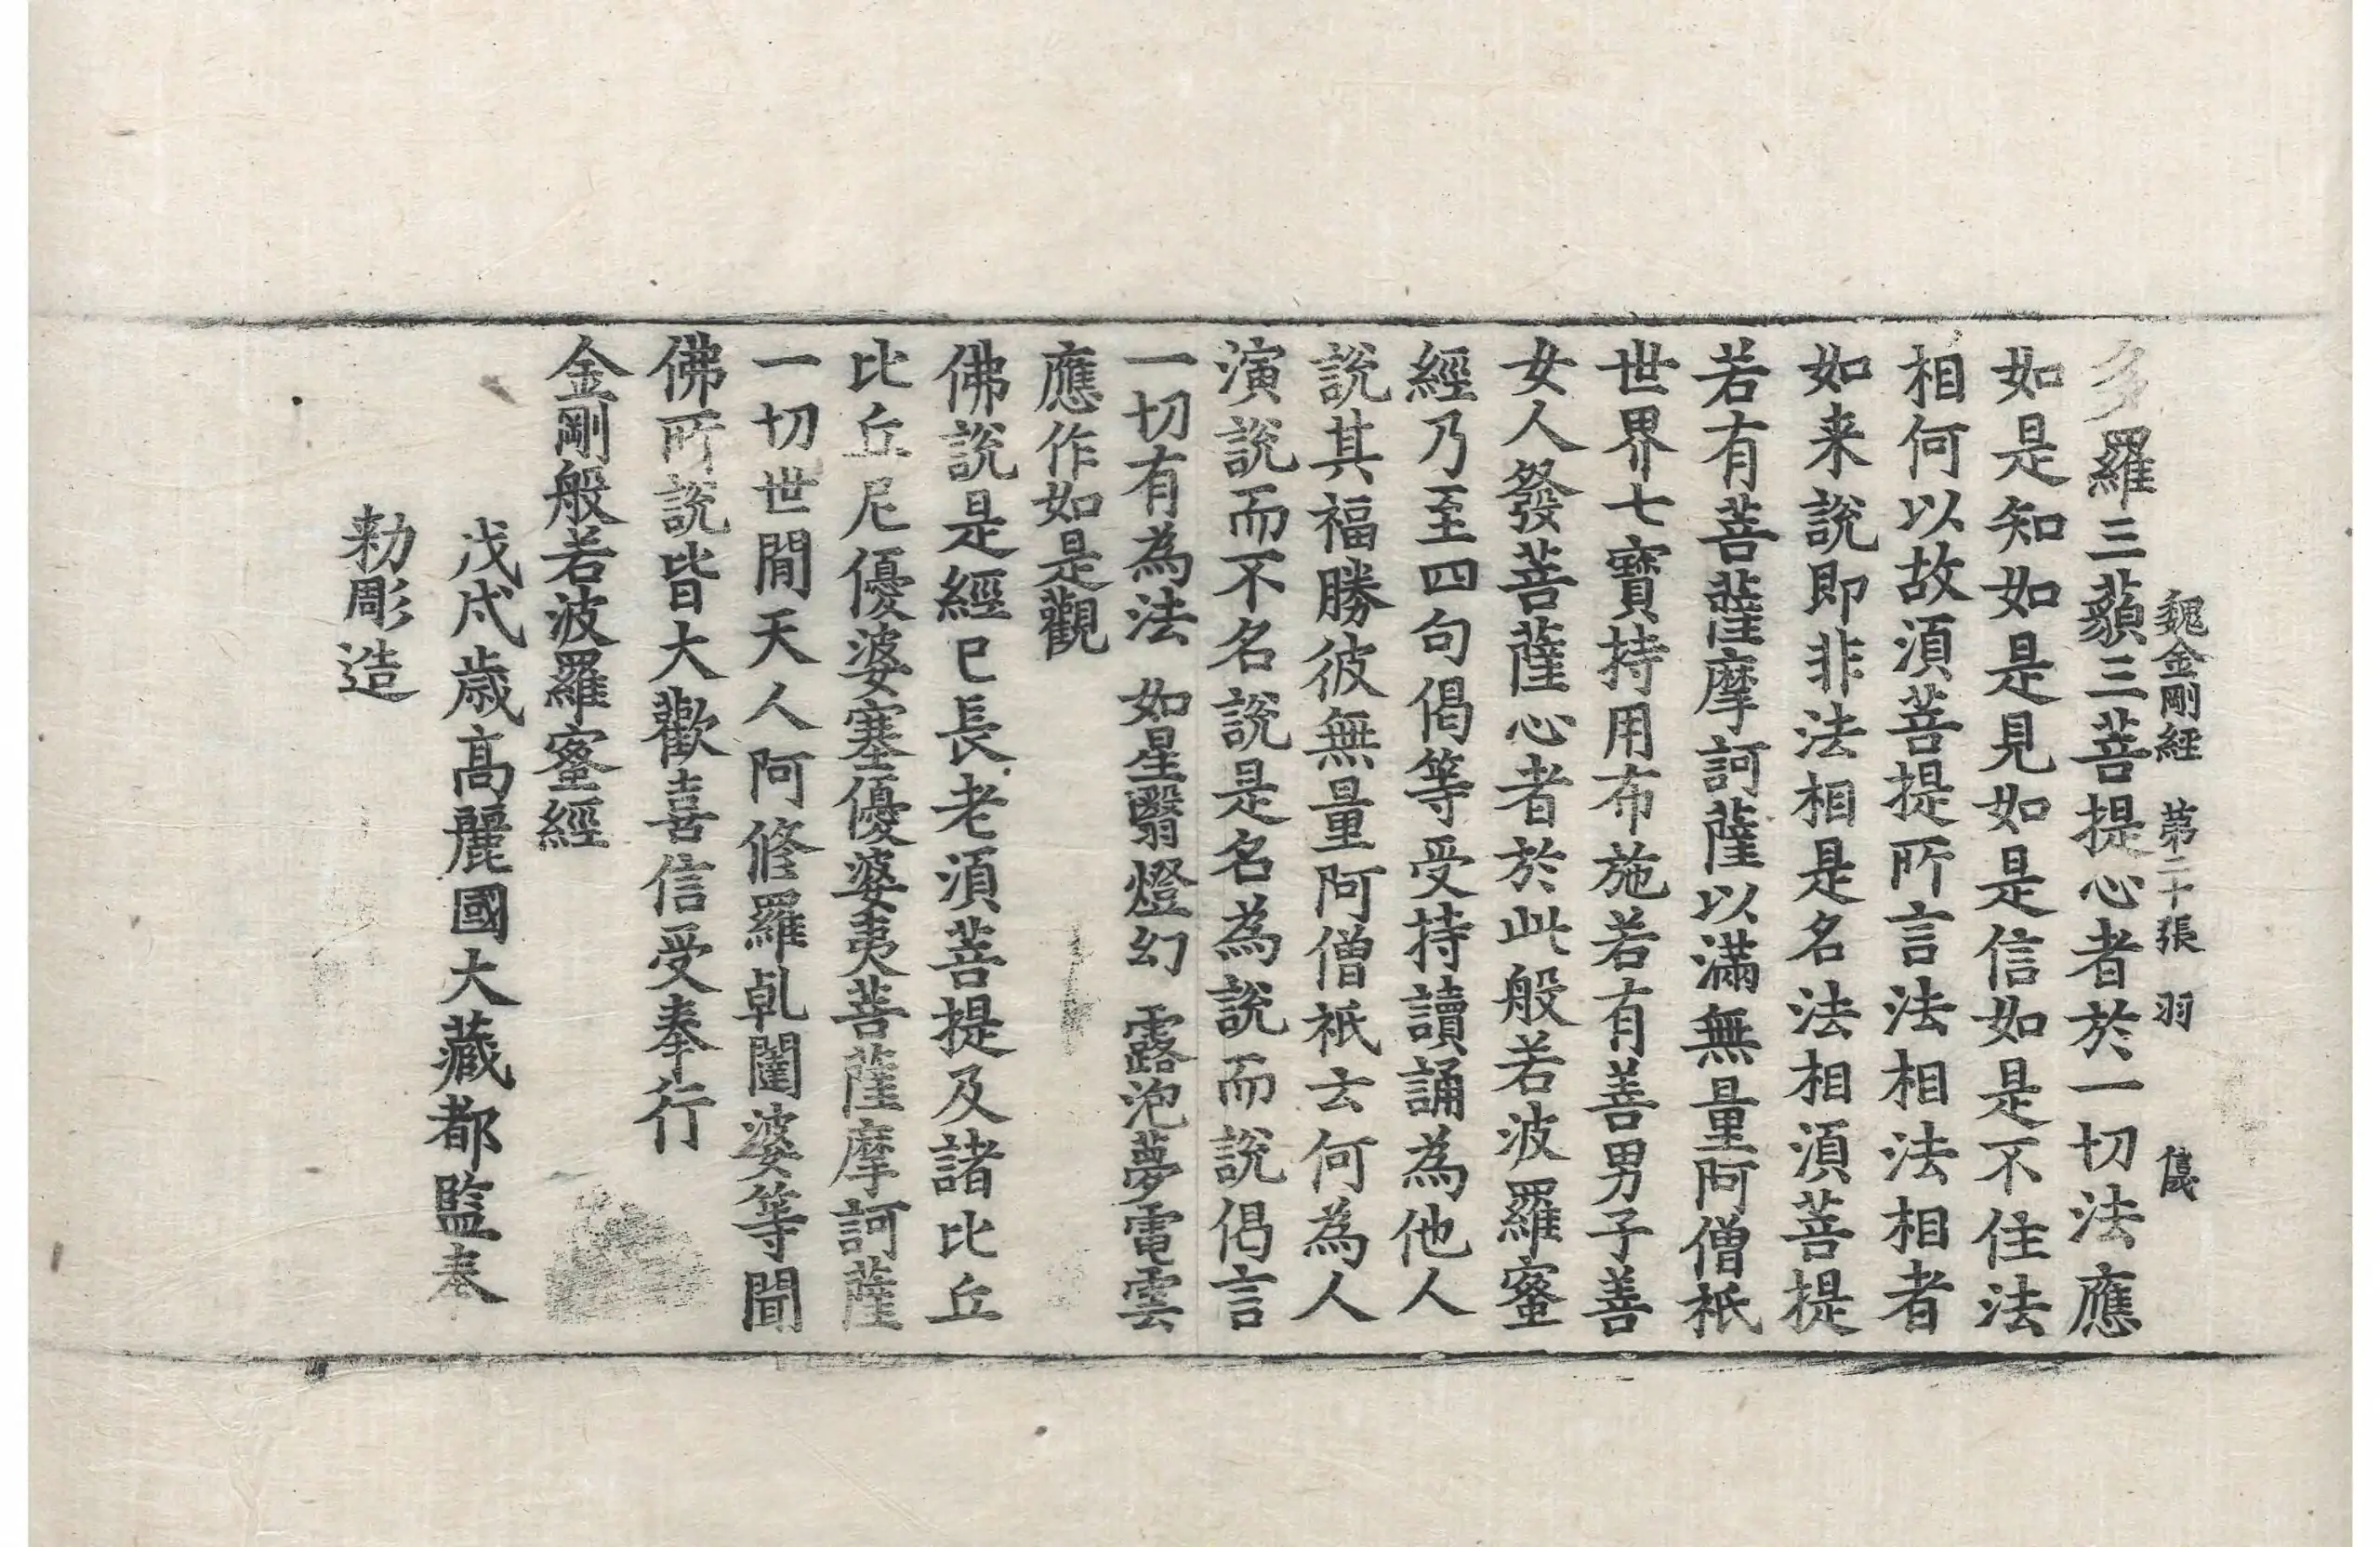 魏金剛経 第二十張 羽 儀
多羅三藐三菩提心者於一切法應
如是知如是見如是信如是不住法
相何以故須菩提所言法相法相者
如来說即非法相是名法相須菩提
若有菩薩摩訶薩以滿無量阿僧祇
世界七寶持用布施若有善男子善
女人發菩薩心者於此般若波羅蜜
經乃至四句偈等受持讀誦為他人
說其福勝彼無量阿僧祇云何為人
演說而不名說是名為說而說偈言
一切有為法 如星翳燈幻 露泡夢電雲
應作如是觀
佛說是經已長老須菩提及諸比丘
比丘尼優婆塞優婆夷菩薩摩訶薩
一切世間天人阿脩羅乹闥婆等聞
佛所說皆大歡喜信受奉行
金剛般若波羅蜜經
戊戌歳高麗國大藏都監奉
勅彫造